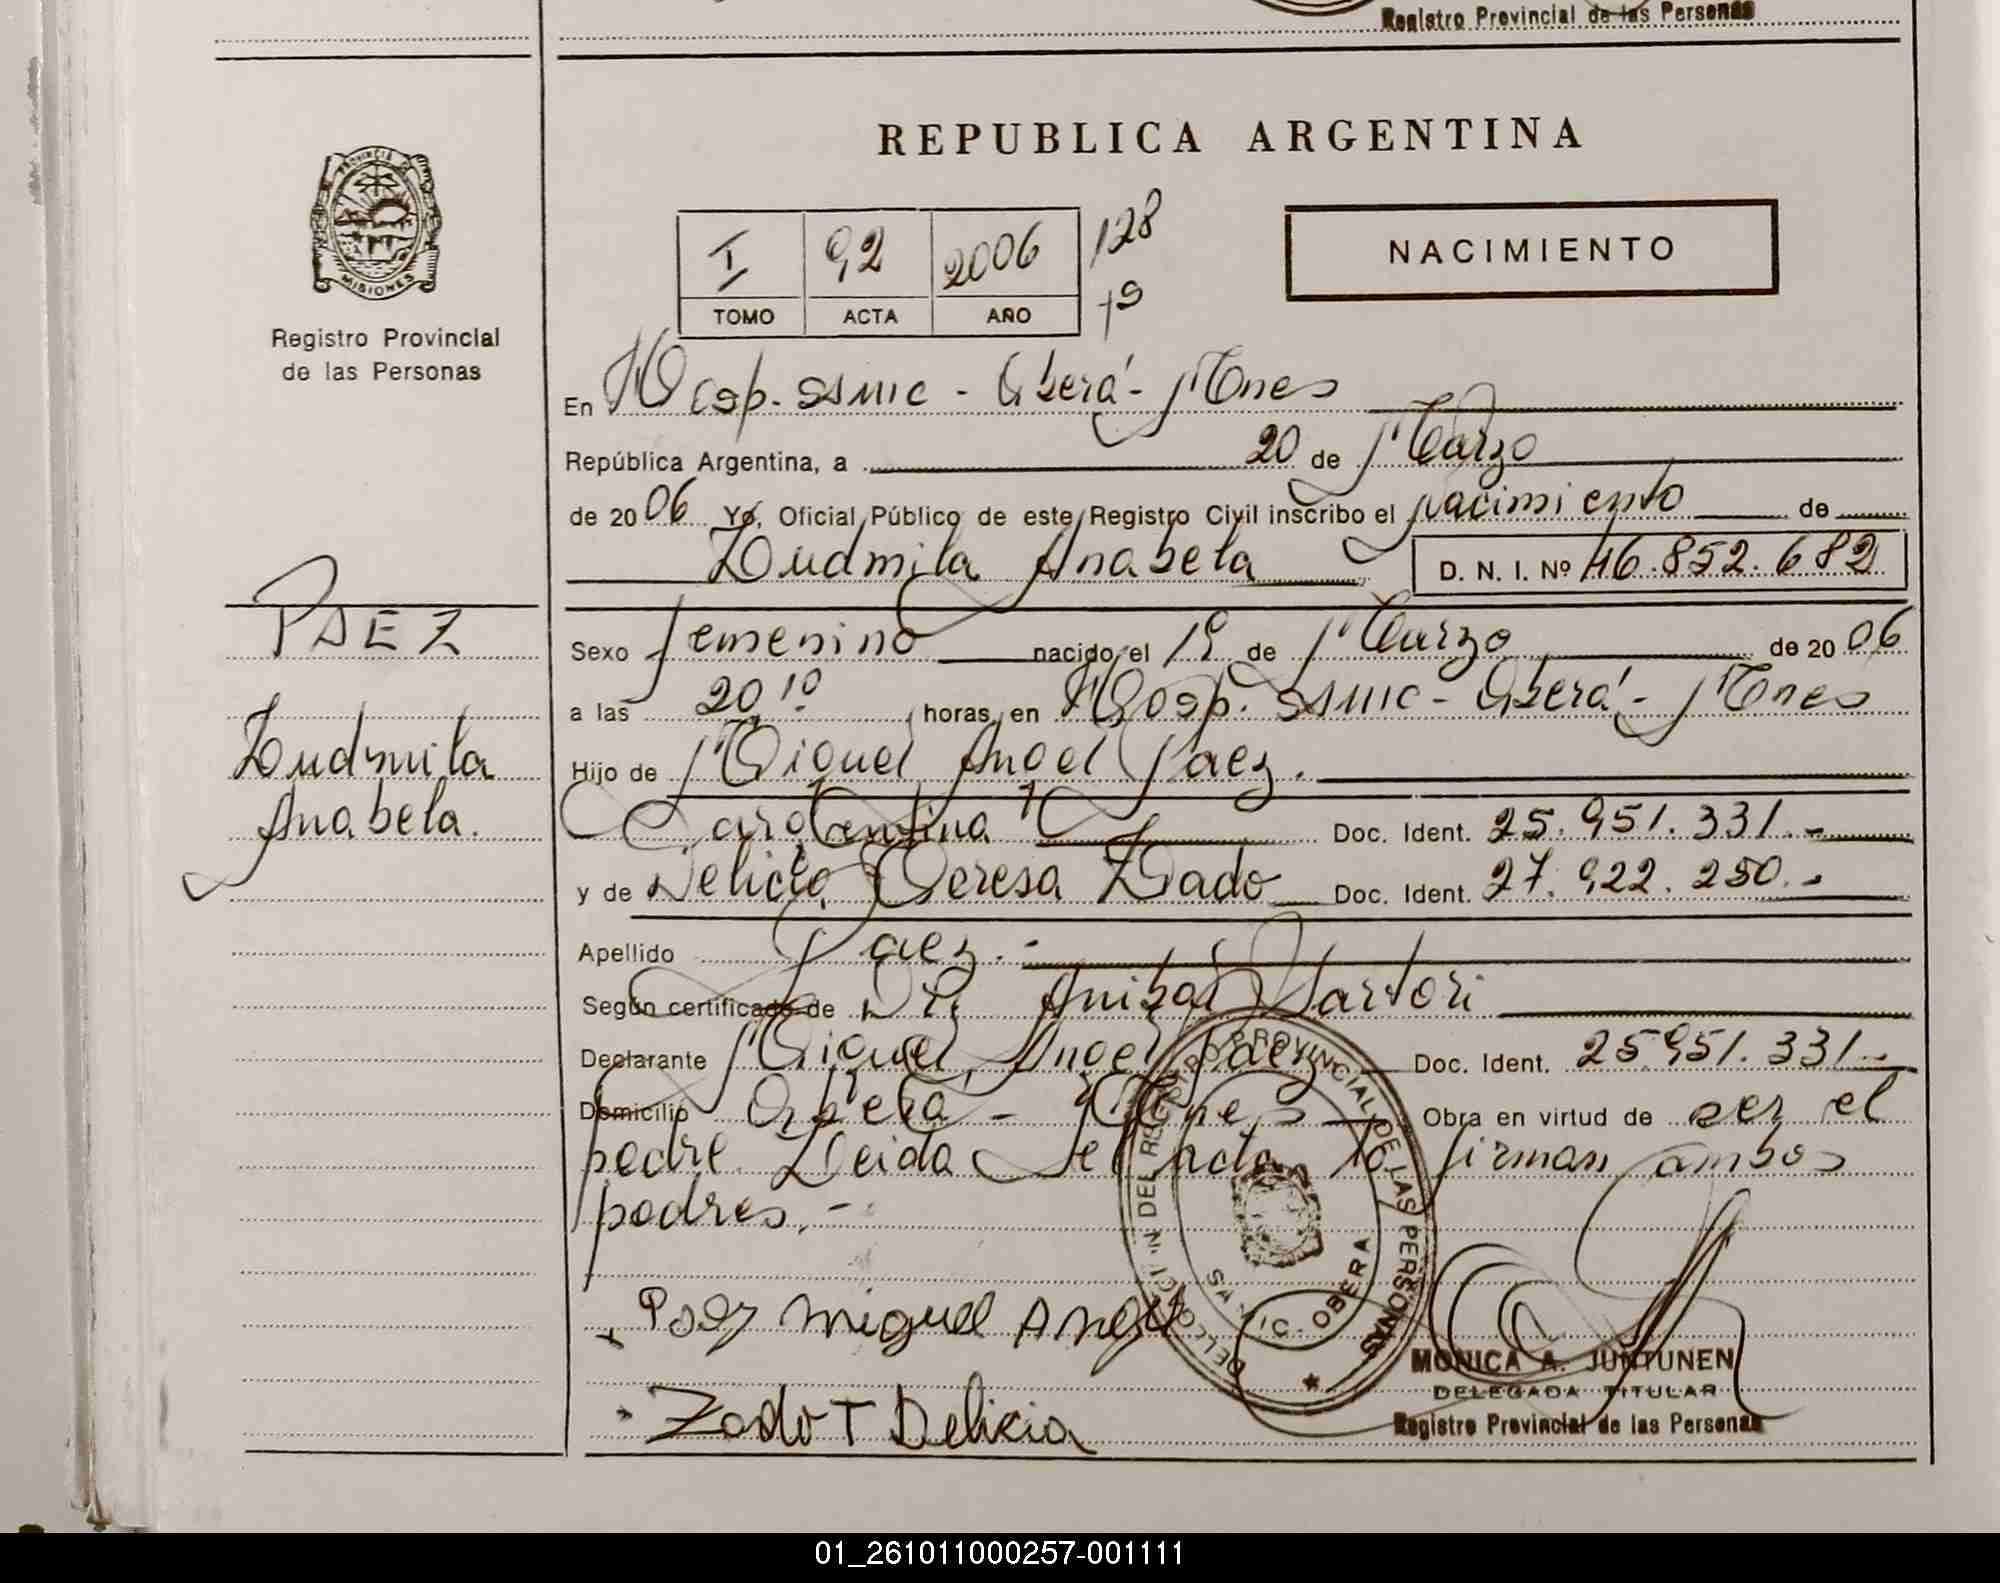 Registro Provincial de las Personas
REPUBLICA ARGENTINA
PROVINCIA DE
MISIONES
Registro Provincial
de las Personas
I 92 2006 128
TOMO ACTA AÑO
NACIMIENTO
En Hosp. SSMIC - Oberá - Mnes
República Argentina, a 20 de Marzo
de 2006 Yo, Oficial Público de este Registro Civil inscribo el nacimiento de
Ludmila Anabela D. N. I. Nº 46.852.682
PAEZ
Ludmila
Anabela.
Sexo femenino nacido el 19 de Marzo de 2006
a las 20,10 horas, en Hosp. SSMIC - Oberá - Mnes
Hijo de Miguel Angel Paez.
argentina Doc. Ident. 25.951.331.-
y de Delicia Teresa Zado Doc. Ident. 27.922.250.-
Apellido Paez.-
Según certificado de Dr. Anibal Sartori
Declarante Miguel Angel Paez Doc. Ident. 25951.331.-
Domicilio Oberá - Mnes Obra en virtud de ser el
padre. Leida el acta la firman ambos
padres.-
DELEGACION DEL REGISTRO PROVINCIAL DE LAS PERSONAS
OBERA
Paez Miguel Angel
Zado T Delicia
MONICA A. JUNTUNEN
DELEGADA TITULAR
Registro Provincial de las Personas
01_261011000257-001111